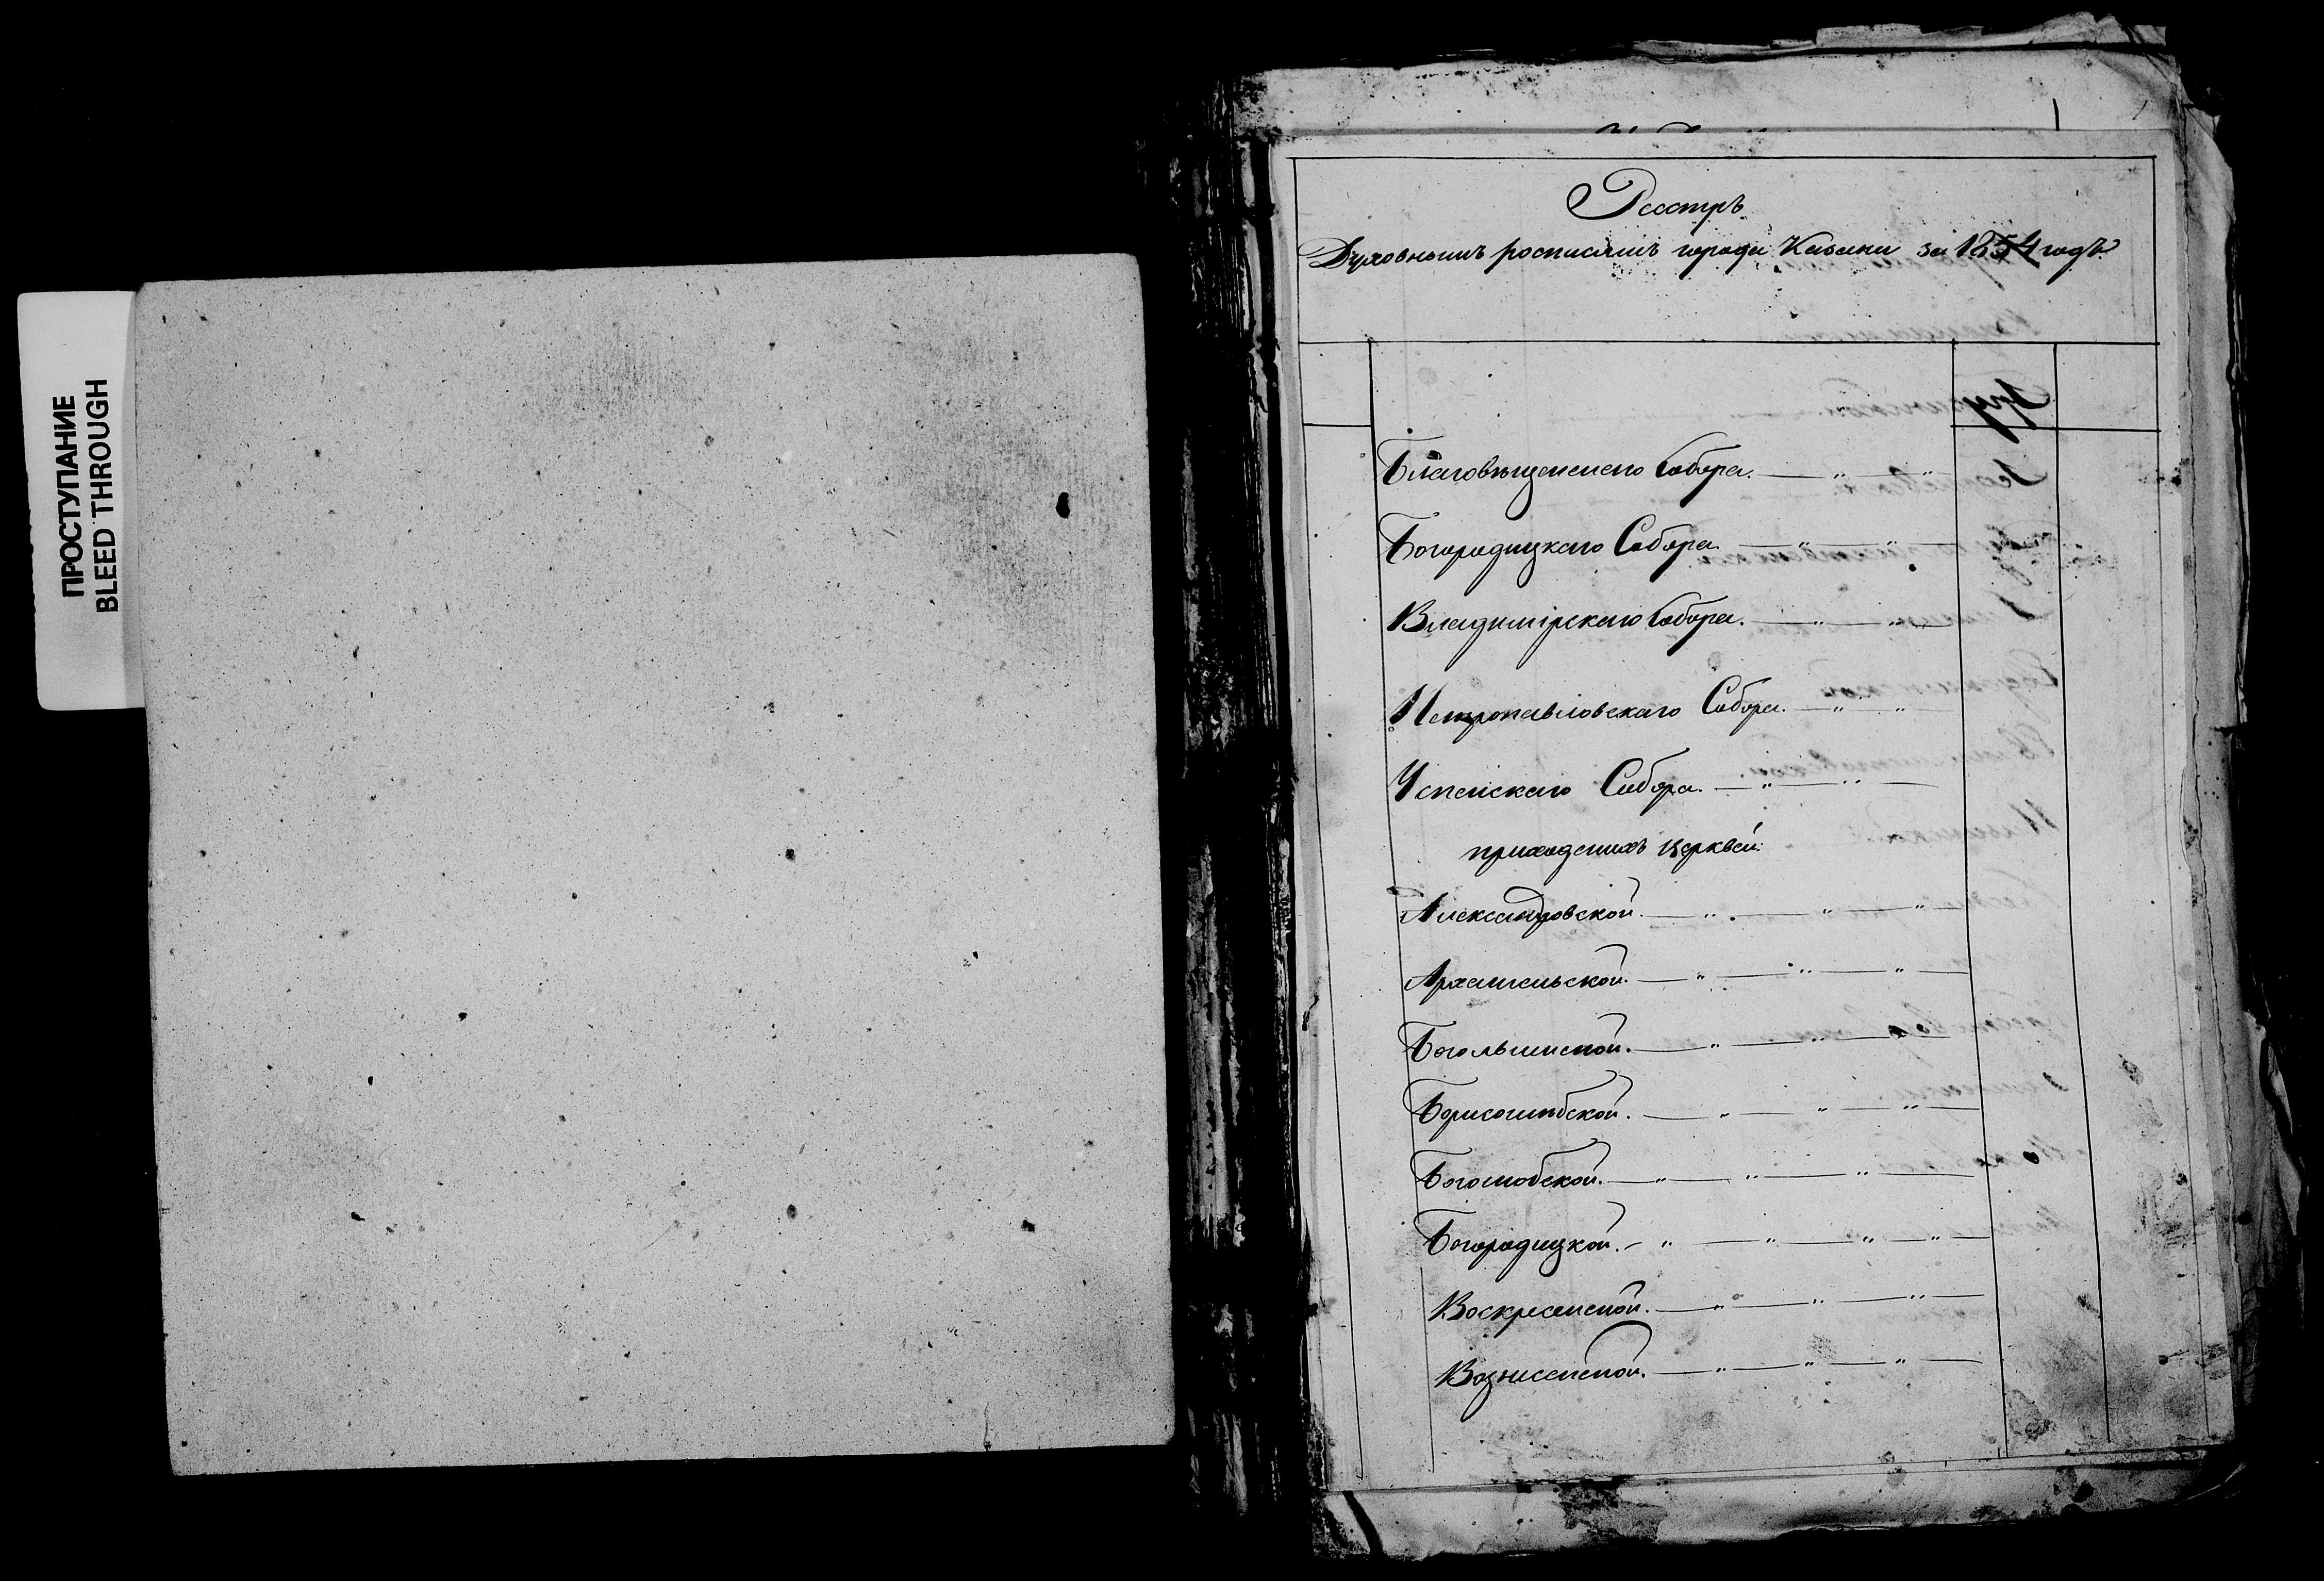 ПРОСТУПАНИЕ
BLEED THROUGH
Реестръ
Духовнымъ росписямъ города Казани за 1854 годъ
Благовѣщенскаго Собора.
Богородицкаго Собора
Владимірскаго Собора.
Петропавловскаго Собора.
Успенскаго Собора.
приходскихъ церквей:
Александровской.
Архангельской.
Борисоглѣбской.
Богородицкой.
Воскресенской.
Вознесенской.